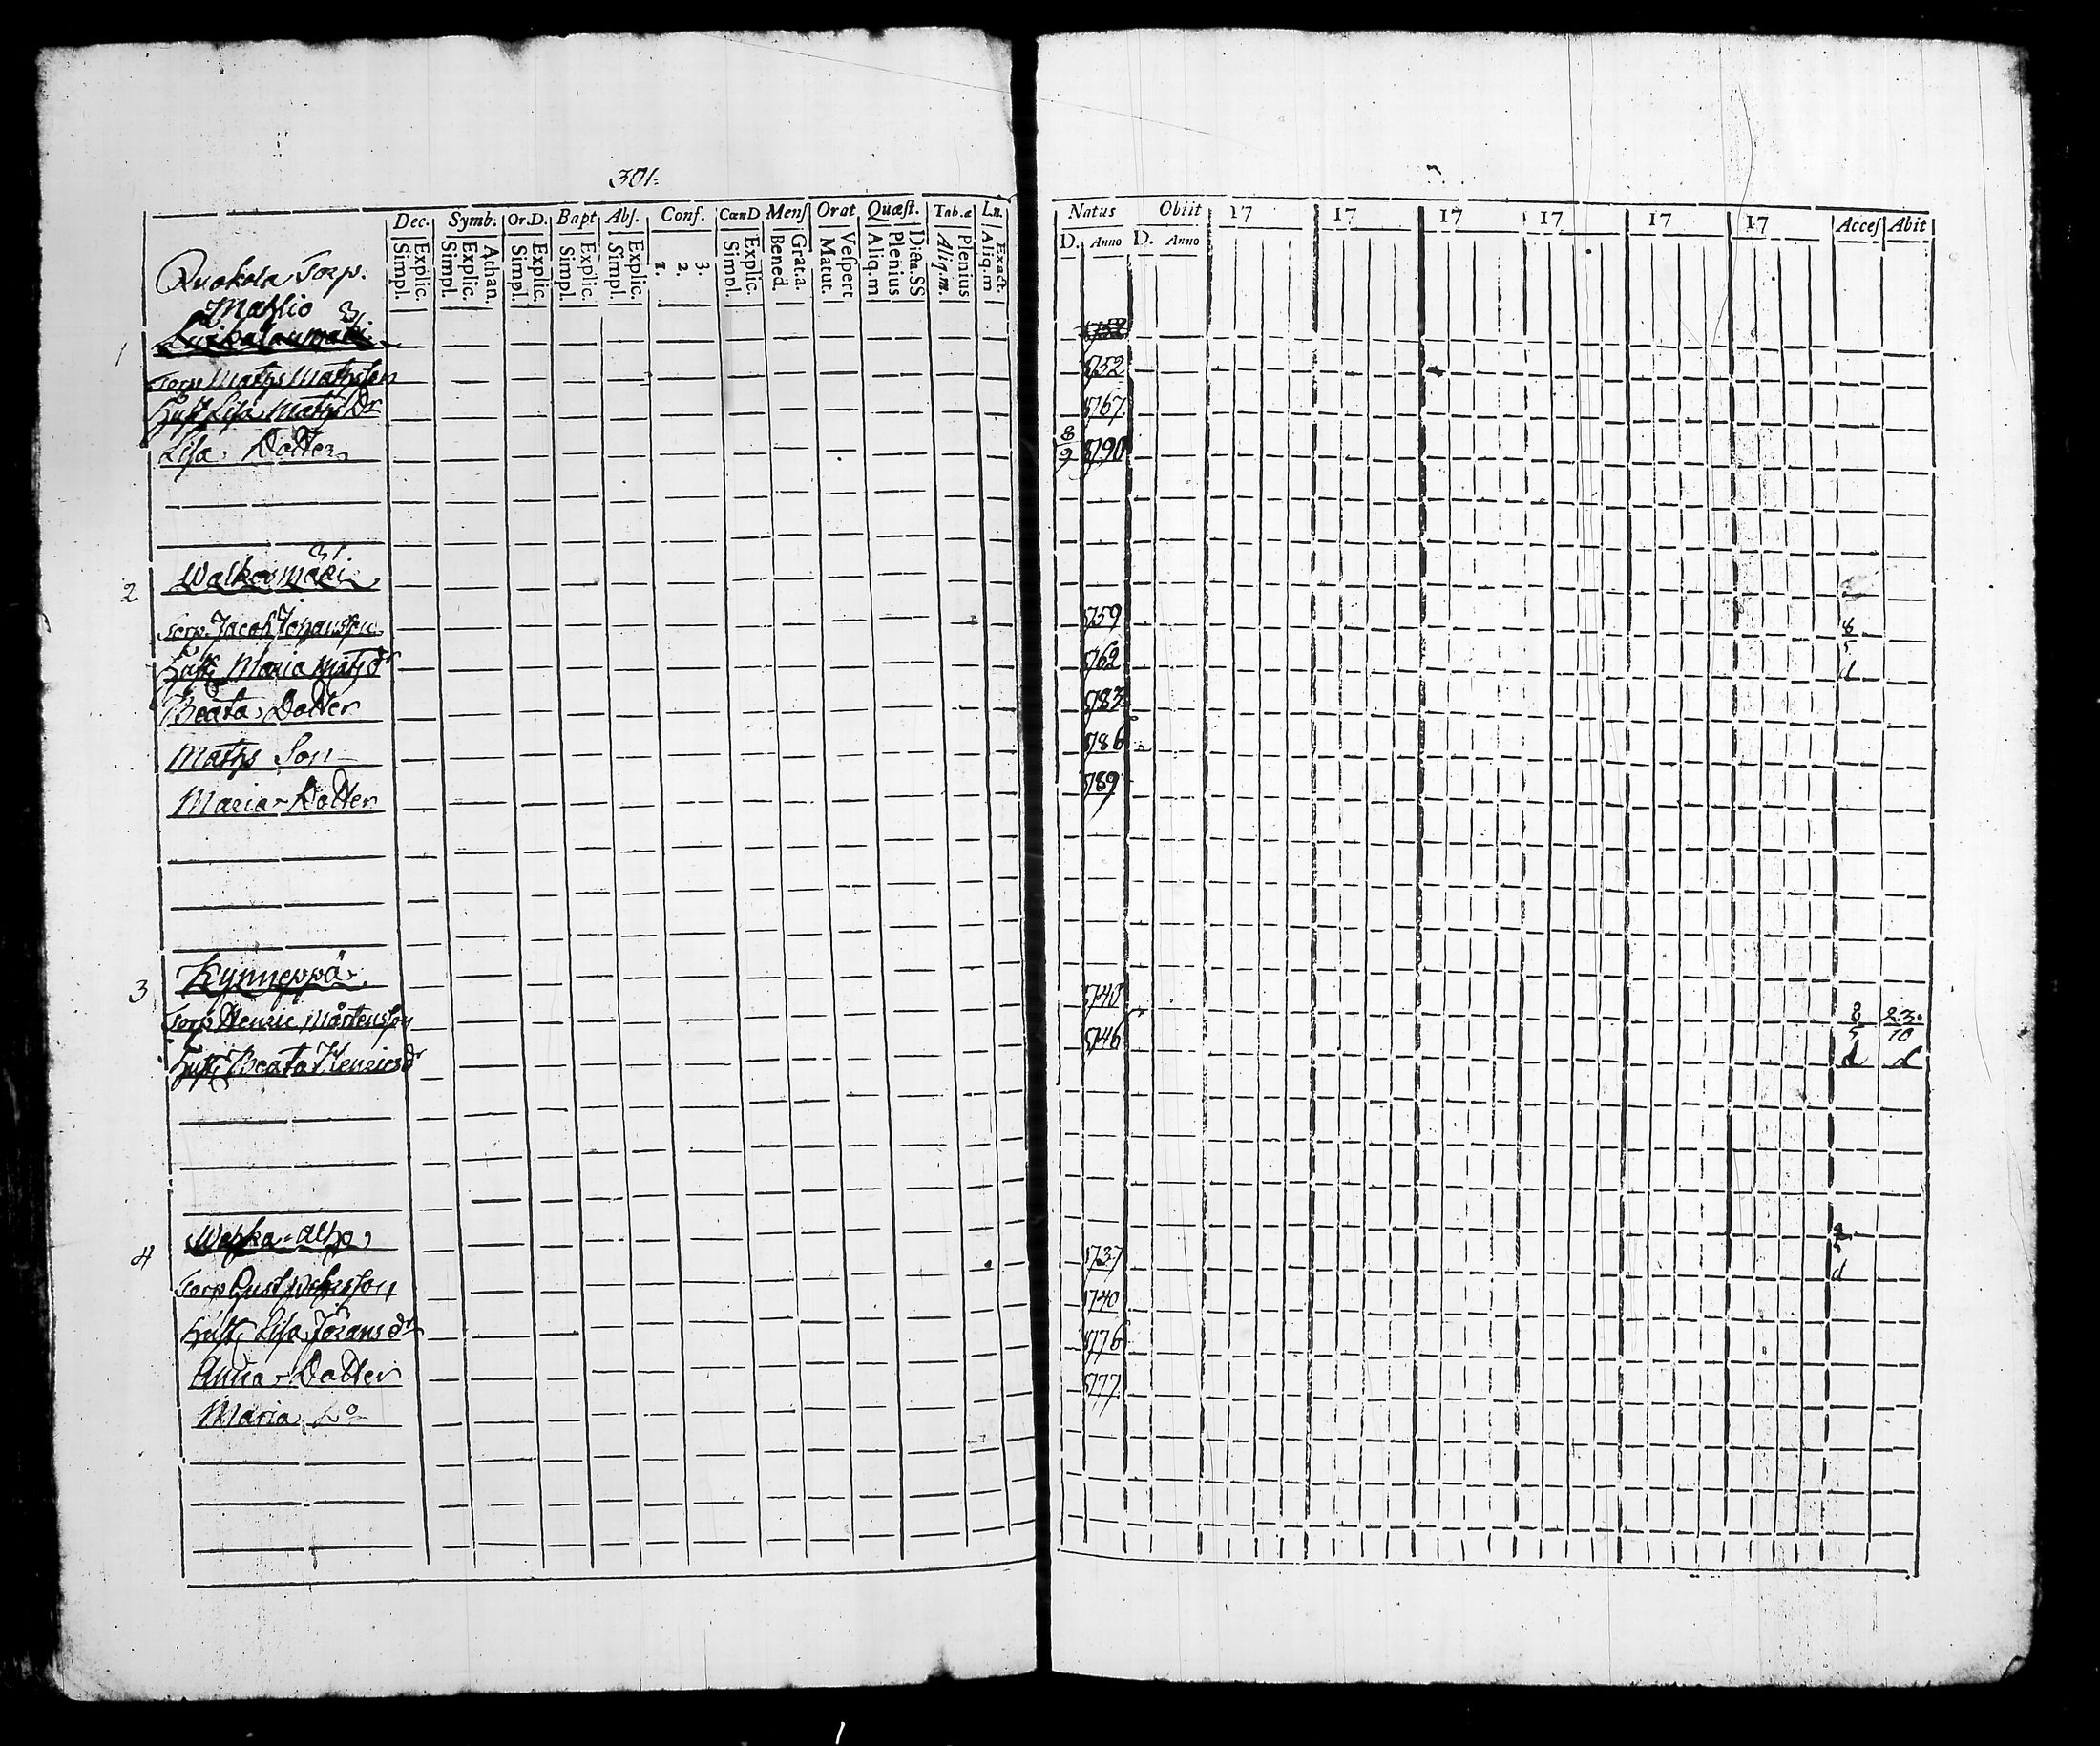 301.
Dec. Symb. Or.D. Bapt Abſ. Conf. CœnD Menſ Orat Quæſt. Tab.æ Natus Obiit 17 17 17 17 17 17 Acceſ Abit
Simpl. Explic. Simpl. Explic. Athan. Simpl. Explic. Simpl. Explic. Simpl. Explic. 1. 2. 3. Simpl. Explic. Bened. Grat.a. Matut. Veſpert Aliq.m Plenius Dicta.SS Aliq.m. Plenius Aliq.m Exact. D. Anno D. Anno
Torp.
Mahlio
31.
1
Torp Matts Mattsson 1752
Hust. Lisa Matts Dr 1767.
Lisa. Dotter 8/9 1790
31.
2 Walkeamäki
Torp. Jacob Johansson 1759 8/5
Hust. Maria Matsdr 1762 d
Beata Dotter 1783
Matts Son 1786
Maria Dotter 1789
3 Kynneppä
Torp Henric Mårtensson 1740 8/5 23./10
Hust. Beata Henricsdr 1746 d d
4 Wehka-alho
Torp Gust 1737 8/5
Hust. Lisa Jöransdr 1740 d
Anna Dotter 1776
Maria Do 1777.